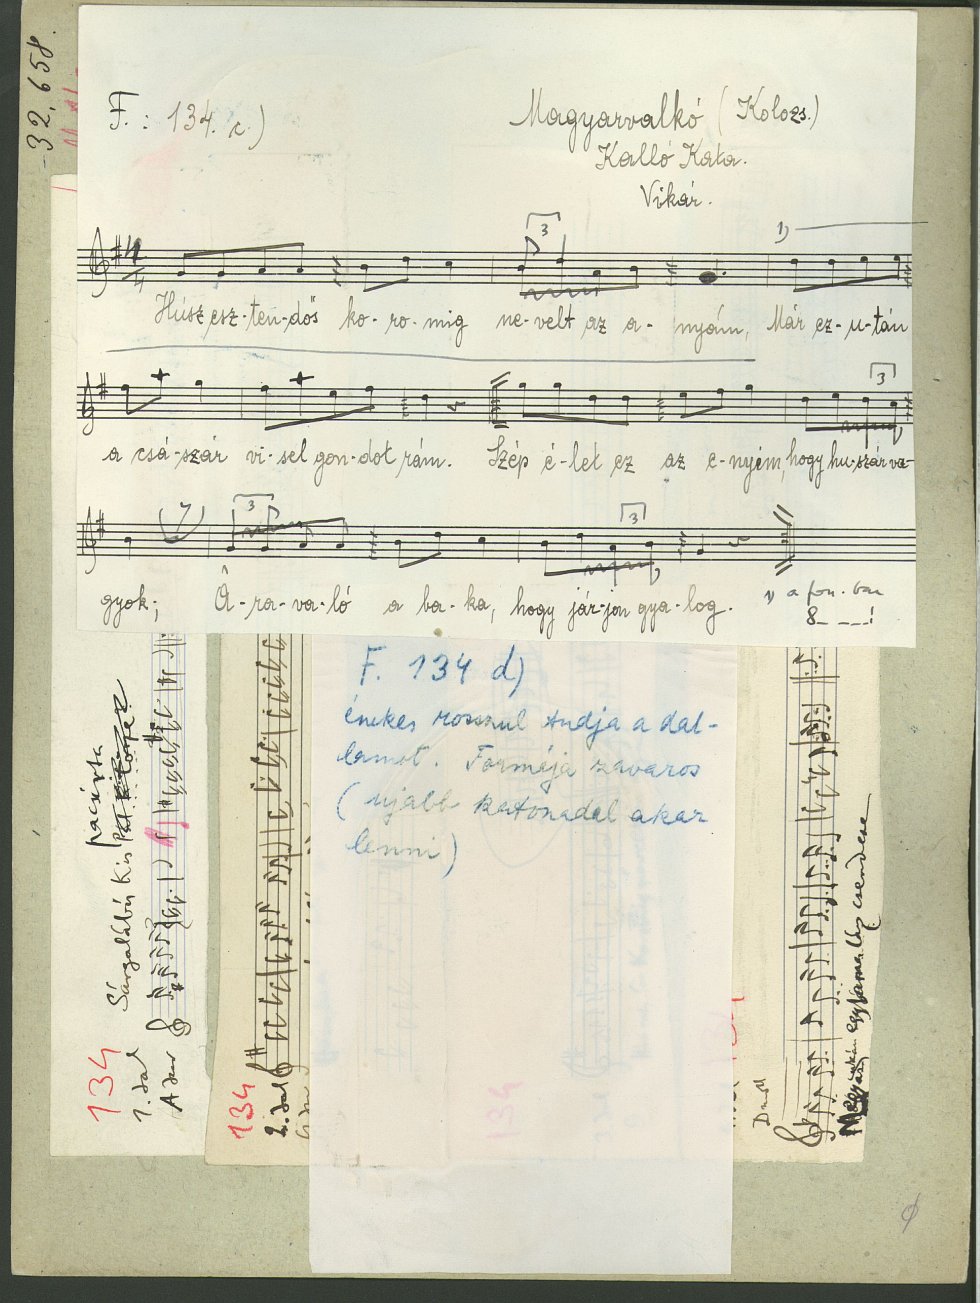 32.658.
F. : 134. c.)
Magyarvalkó (Kolozs.)
Kalló Kata.
Vikár.
3
1)
4
4
Húsz esz-ten-dős ko-ro-mig ne-velt az a-nyám, Már ez-u-tán
3
a csá-szár vi-sel gon-dot rám. Szép é-let ez az e-nyém, hogy hu-szár va-
3
3
gyok; Â-ra-va-ló a ba-ka, hogy jár-jon gya-log.
1) a fon.-ban
8
F. 134 d)
énekes rosszul tudja a dal-
lamot. Formája zavaros
(ujabb katonadal akar
lenni)
134
1. dal
Sárgalábú kis pacsirta
134
2. dal
134